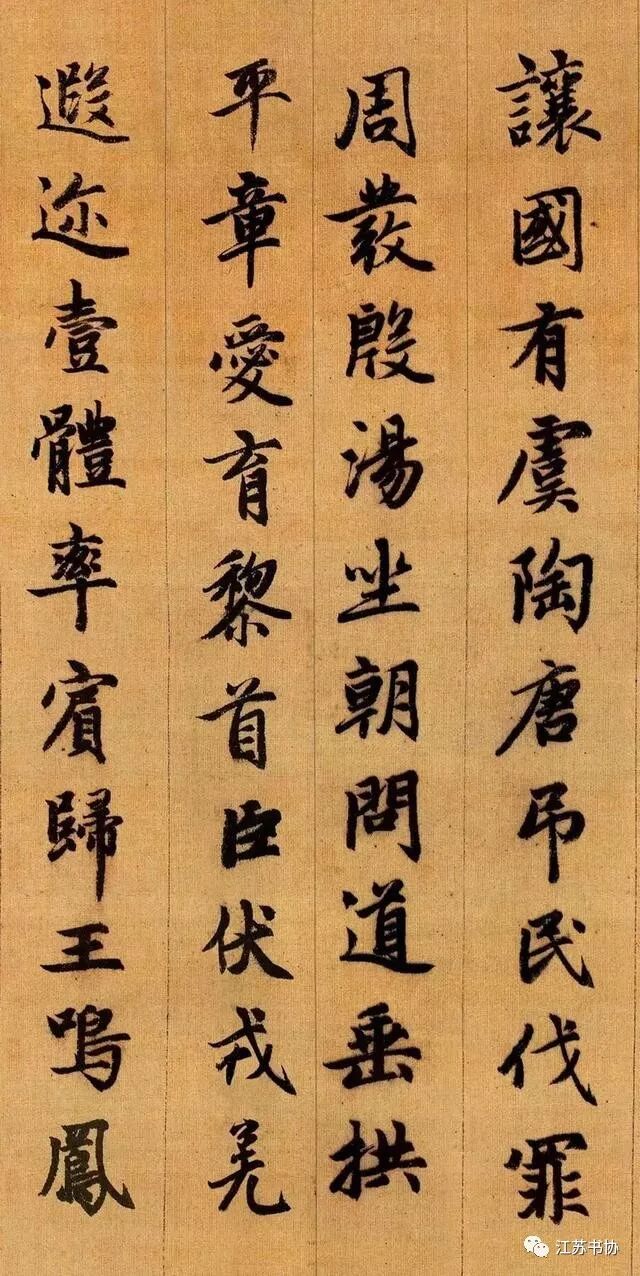 讓國有虞陶唐吊民伐罪
周發殷湯坐朝問道垂拱
平章愛育黎首臣伏戎羌
遐迩壹體率賓歸王鳴鳳
江苏书协